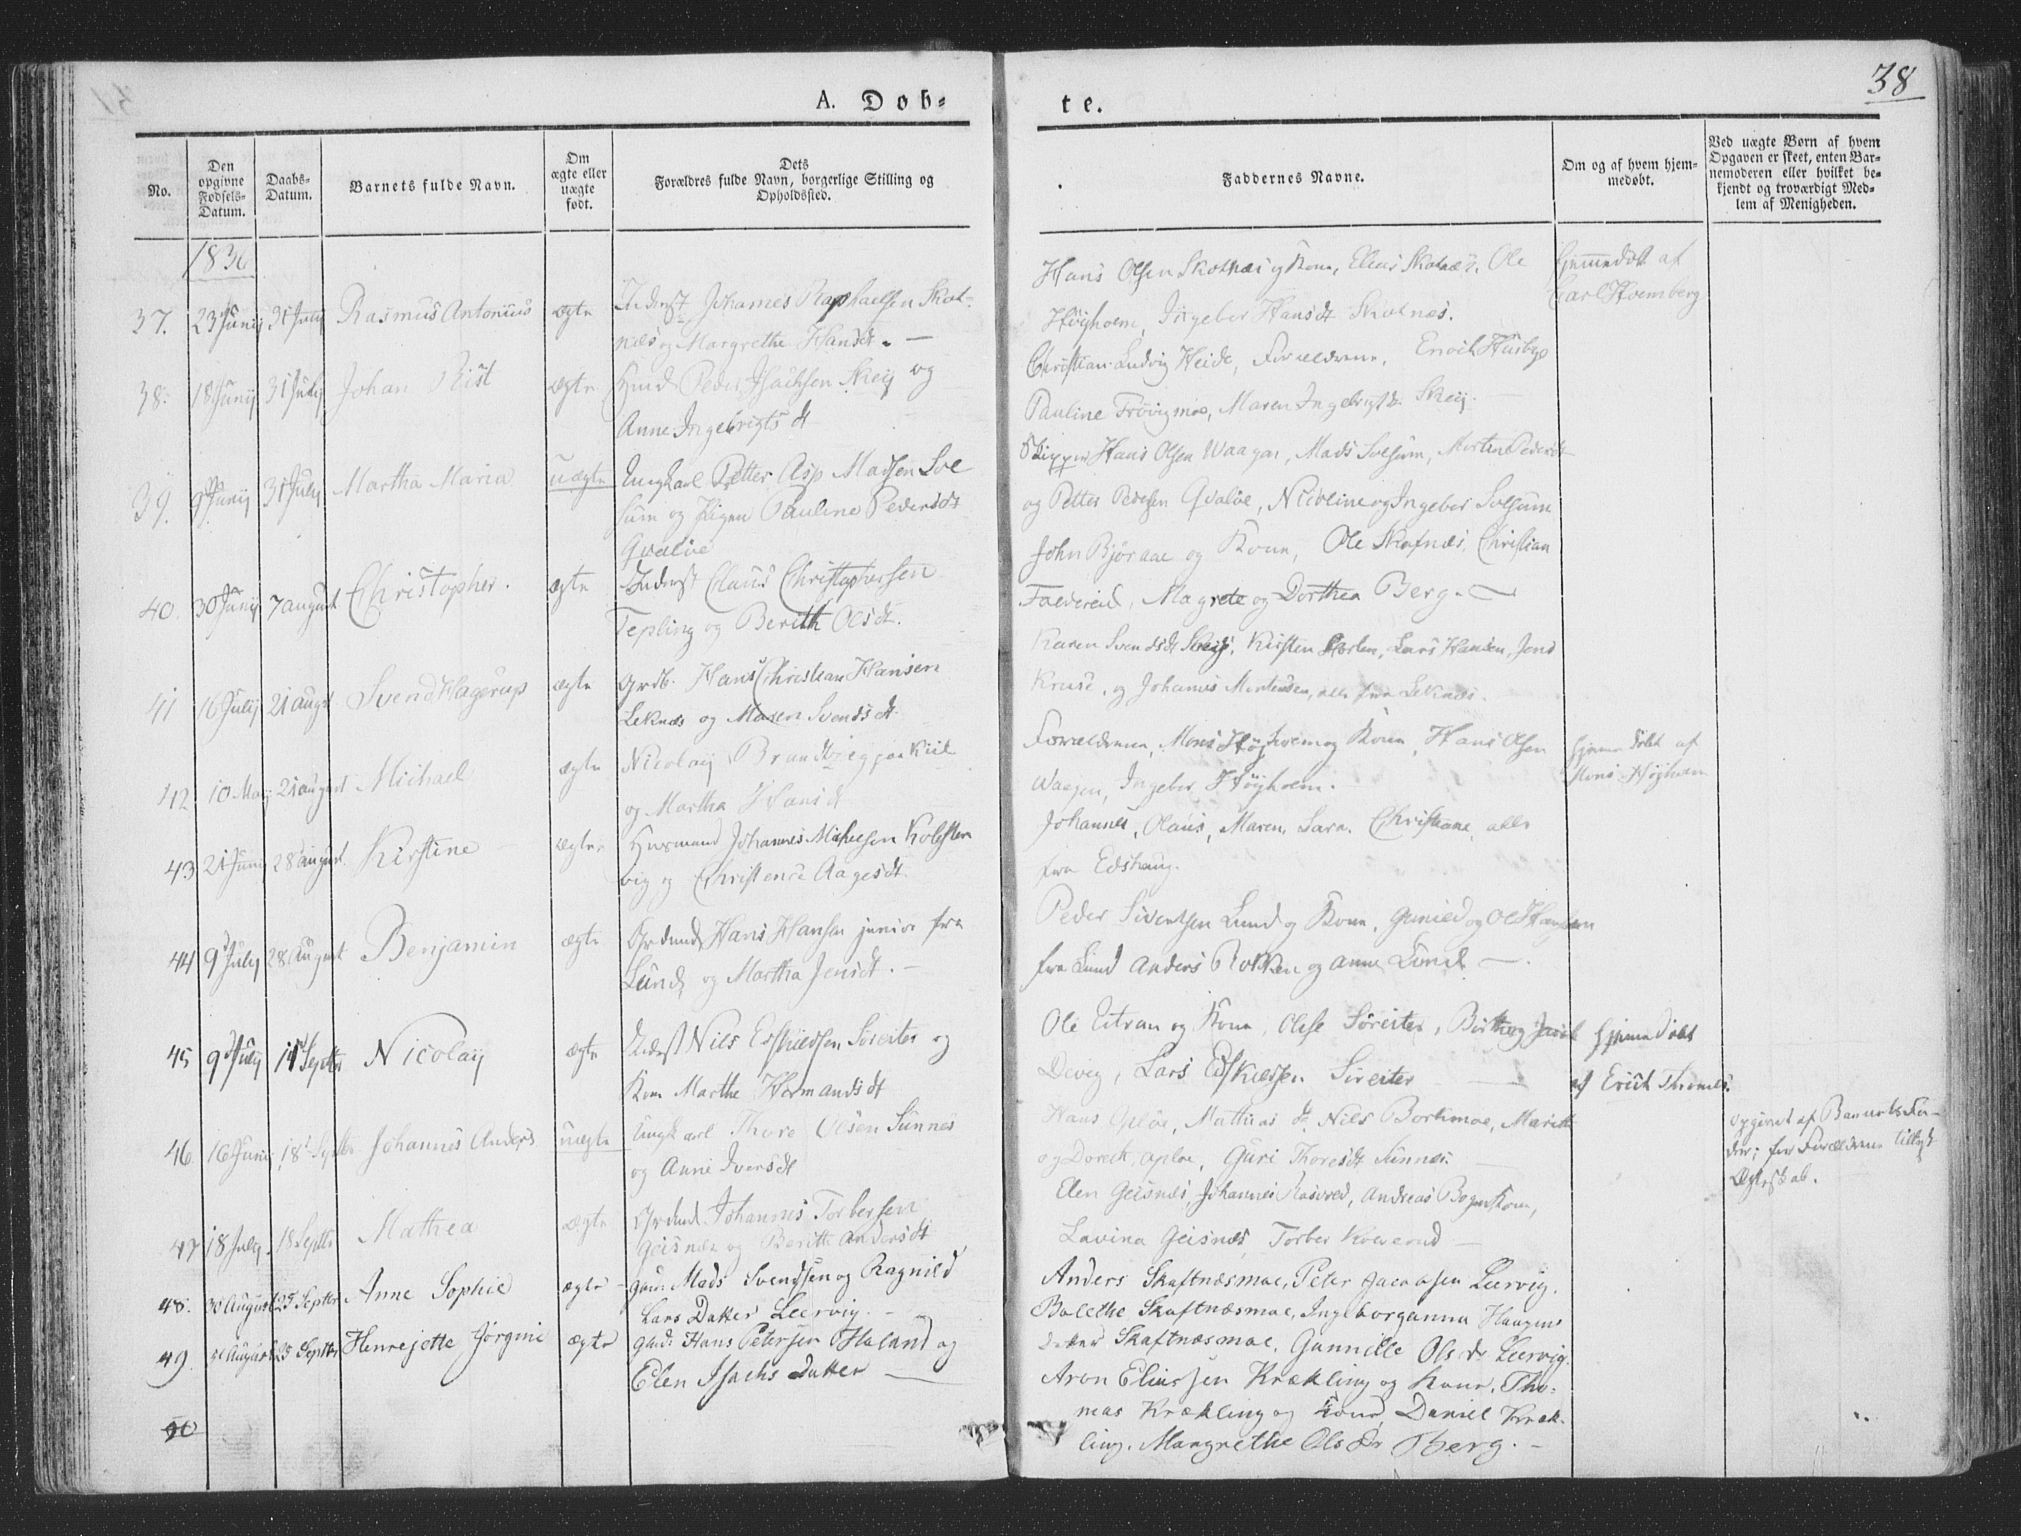 38
A. Døb-
te.
No.
Den opgivne Fødsels-Datum.
Daabs-Datum.
Barnets fulde Navn.
Om ægte eller uægte født.
Dets Forældres fulde Navn, borgerlige Stilling og Opholdssted.
Faddernes Navne.
Om og af hvem hjem-
medøbt.
Ved uægte Børn af hvem
Opgaven er skeet, enten Bar-
nemoderen eller hvilket be-
kjendt og troværdigt Med-
lem af Menigheden.
1836
37. 23 Junij 31 July Rasmus Antonius ægte Inderst Johannes Raphaelsen Skot-
næs og Margrethe Hansdt. —
Hans Olsen Skotnæs og Kone, Elias Skotnæs, Ole
Høyholm, Ingebor Hansdt Skotnæs.
Hjemmedøbt af
Carl Holmberg
38. 18 Junij 31 July Johan Rist ægte Huusmd Peder Isachsen Skeij og
Anne Ingebrigtsdt
Christian Ludvig Heide, Forældrene, Enoch Husby
Pauline Trøvigmoe, Maren Ingebrigtsdt Skeij. —
39. 9 Junij 31 July Martha Maria uægte Ungkarl Petter Asp Madsen Sol
sum og Pigen Pauline Pedersdt
Qvaløe
Skipper Hans Olsen Waagan, Mads Solsum, Morten Pedersdt
og Petter Pedersen Qvaløe, Nicoline og Ingebor Solsum
40. 30 Junij 7 august Christopher. ægte Inderst Claus Christophersen
Tepling og Berith Olsdt.
John Bjøraae og Kone, Ole Skafnæs, Christian
Faldereid, Magrete og Dorthea Berg. —
41 16 July 21 augst Svend Hagerup ægte Grdb. Hans Christian Hansen
Leknæs og Maren Svendsdt
Karen Svendsdt Skeij, Kirsten Horten, Lars Hansen, Jens
Kruse, og Johannes Mortensen, alle fra Leknæs.
42 10 May 21 august Michael ægte Nicolay Brandtzeg paa Kiil
og Martha Hansdt
Forældrene, Mons Høyholm og Kone, Hans Olsen
Waagan, Ingebor Høyholm.
hjemmedøbt af
Mons Høyholm
43 21 Juni 28 august Kirstine ægte Huusmand Johannes Michelsen Kolsten
vig og Christense Aagesdt
Johannes, Olaus, Maren, Sara, Christiane, alle
fra Edshaug.
44 9 July 28 August Benjamin ægte Grdmd Hans Hansen junior fra
Lund, og Martha Jensdt. —
Peder Sivertsen Lund og Kone, Gunild og Ol Hansen
fra Lund Anders Rokken og Anne Lund —
45 9 July 11 Septbr Nicolay ægte Inderst Nils Edskildsen Søreiter og
Kone Marthe Hermandsdt
Ole Titran og Kone, Olese Søreiter, Birthe og Jacob
Devig, Lars Edskildsen Søreiter —
hjemmedøbt
af Erich Thomes.
46. 16 Juni 18 Septbr Johannes Anders uægte Ungkarl Thore Olsen Sunnes
og Anne Iversdt
Hans Opløe, Mathias dt, Nils Bortimoe, Marith
og Doreth, Opløe, Guri Thoresdt Sunnes.
opgivet af Barnets Fa-
der; før Forældrene tillyst
Ægteskab.
47 18 July 18 Septbr Mathea ægte Grdmd Johannes Torbersen
Geisnæs og Berith Andersdt
Elen Geisnæs, Johannes Rosvred, Andreas Bogen Kone,
Lavina Geisnæs, Torber Kolverud —
48. 30 August 25 Septbr Anne Sophie ægte Gaar. Mads Svendsen og Ragnild
Lars Datter Leervig. —
Anders Skaftnæsmoe, Peter Jacobsen Leervig,
Bolethe Skaftnæsmoe, Ingeborganna Haagens
datter Skaftnæsmoe, Gunnille Olsdr Leervig.
49. 31 August 25 Septbr Henrejette Jørgine ægte Gaad: Hans Petersen Haland og
Elen Isachs Datter —
Aron Eliassen Krækling og Kone, Tho-
mas Krækling og Kone, Daniel Kræk-
ling. Margrethe Olsdr Berg. —
50